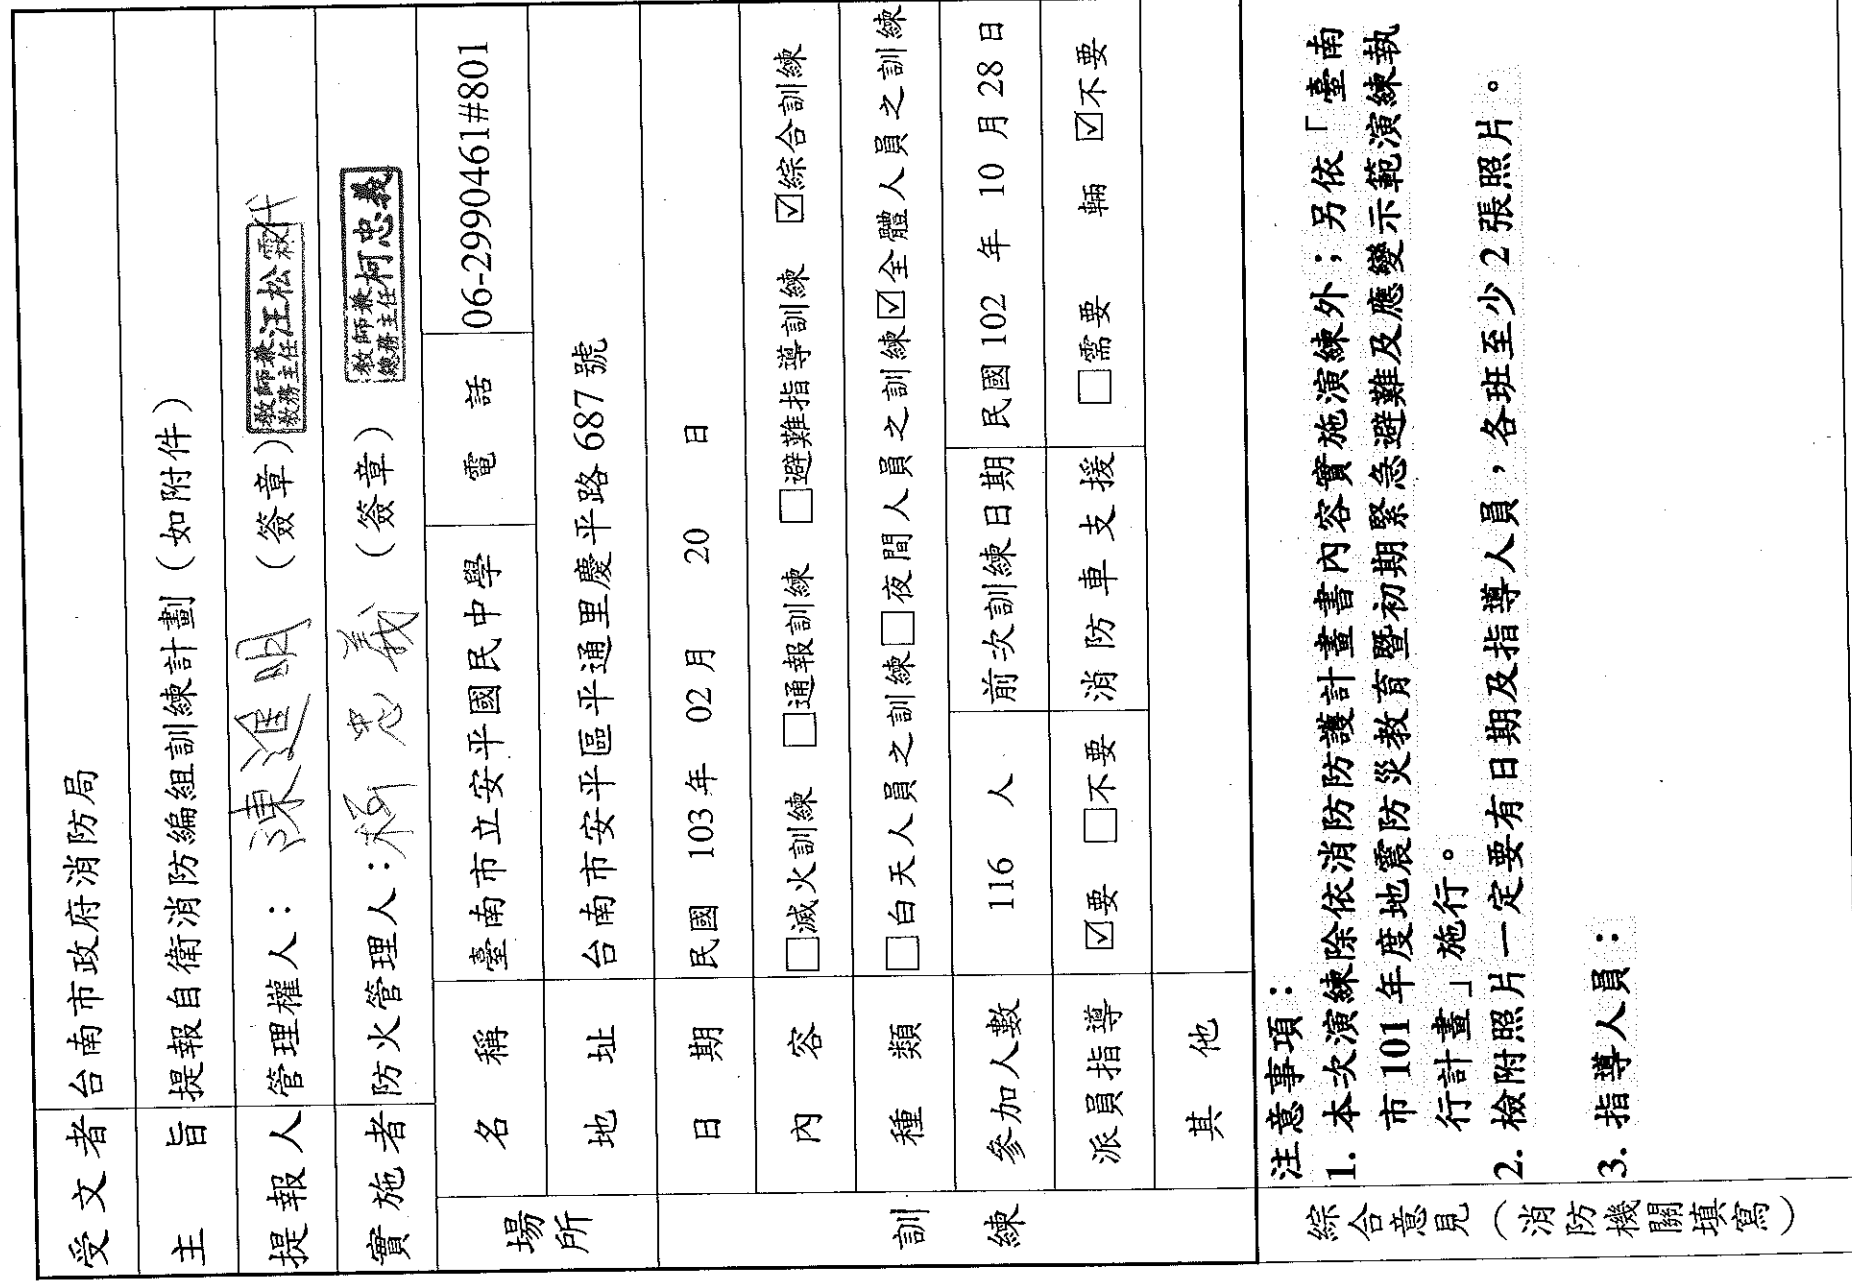 受文者 台南市政府消防局
主旨 提報自衛消防編組訓練計劃（如附件）
提報人 管理權人： 陳進明 （簽章） 教師兼教務主任 汪松霖
實施者 防火管理人： 柯忠義 （簽章） 教師兼總務主任 柯忠義
場所 名稱 臺南市立安平國民中學 電話 06-2990461#801
地址 台南市安平區平通里慶平路 687 號
訓練 日期 民國 103 年 02 月 20 日
內容 □滅火訓練 □通報訓練 □避難指導訓練 ☑綜合訓練
種類 □白天人員之訓練□夜間人員之訓練☑全體人員之訓練
參加人數 116 人 前次訓練日期 民國 102 年 10 月 28 日
派員指導 ☑要 □不要 消防車支援 □需要 輛 ☑不要
其他
綜合意見（消防機關填寫）
注意事項：
1. 本次演練除依消防防護計畫書內容實施演練外；另依「臺南
市 101 年度地震防災教育暨初期緊急避難及應變示範演練執
行計畫」施行。
2. 檢附照片一定要有日期及指導人員，各班至少 2 張照片。
3. 指導人員：